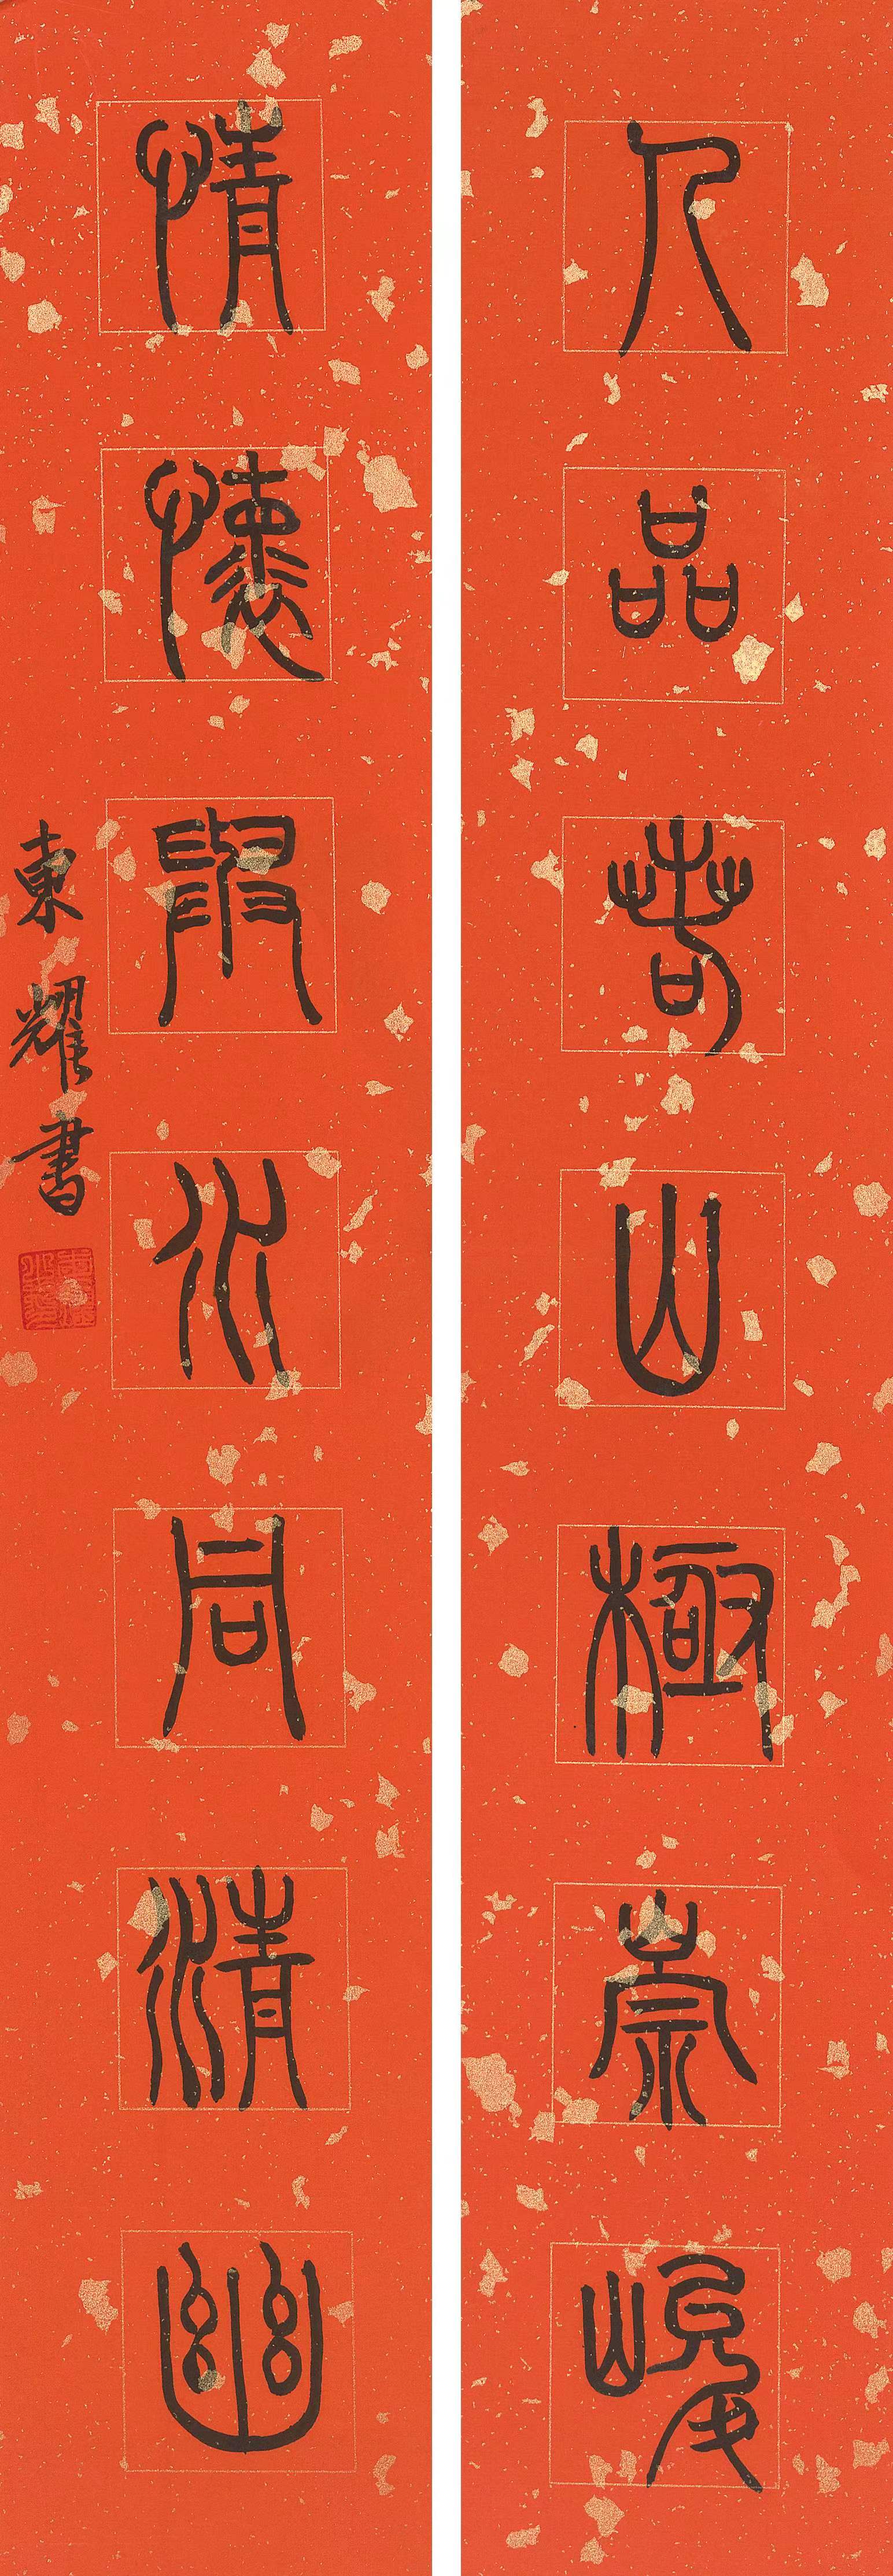 人品若山極崇峻
情懷與水同清幽
東耀書